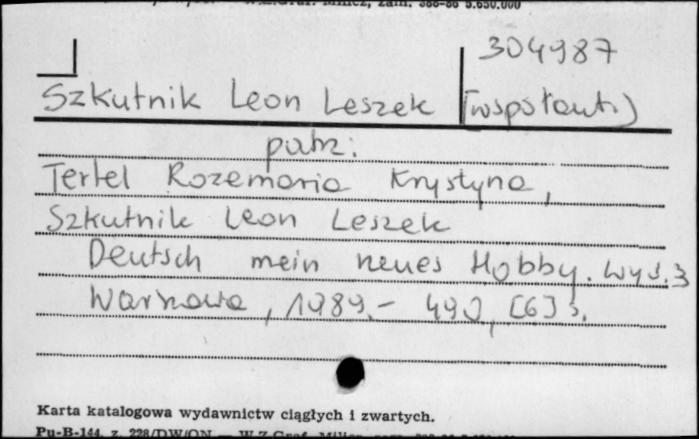 zam. 388-86 5.650.000
304987
Szkutnik Leon Leszek (współaut.)
patrz:
Tertel Rozemaria Krystyna,
Szkutnik Leon Leszek
Deutsch mein neues Hobby. Wyd. 3
Warszawa, 1989.- 490, [6] s.
Karta katalogowa wydawnictw ciągłych i zwartych.
Pu-B-144, z. 228/DW/ON — W.Z.Graf.